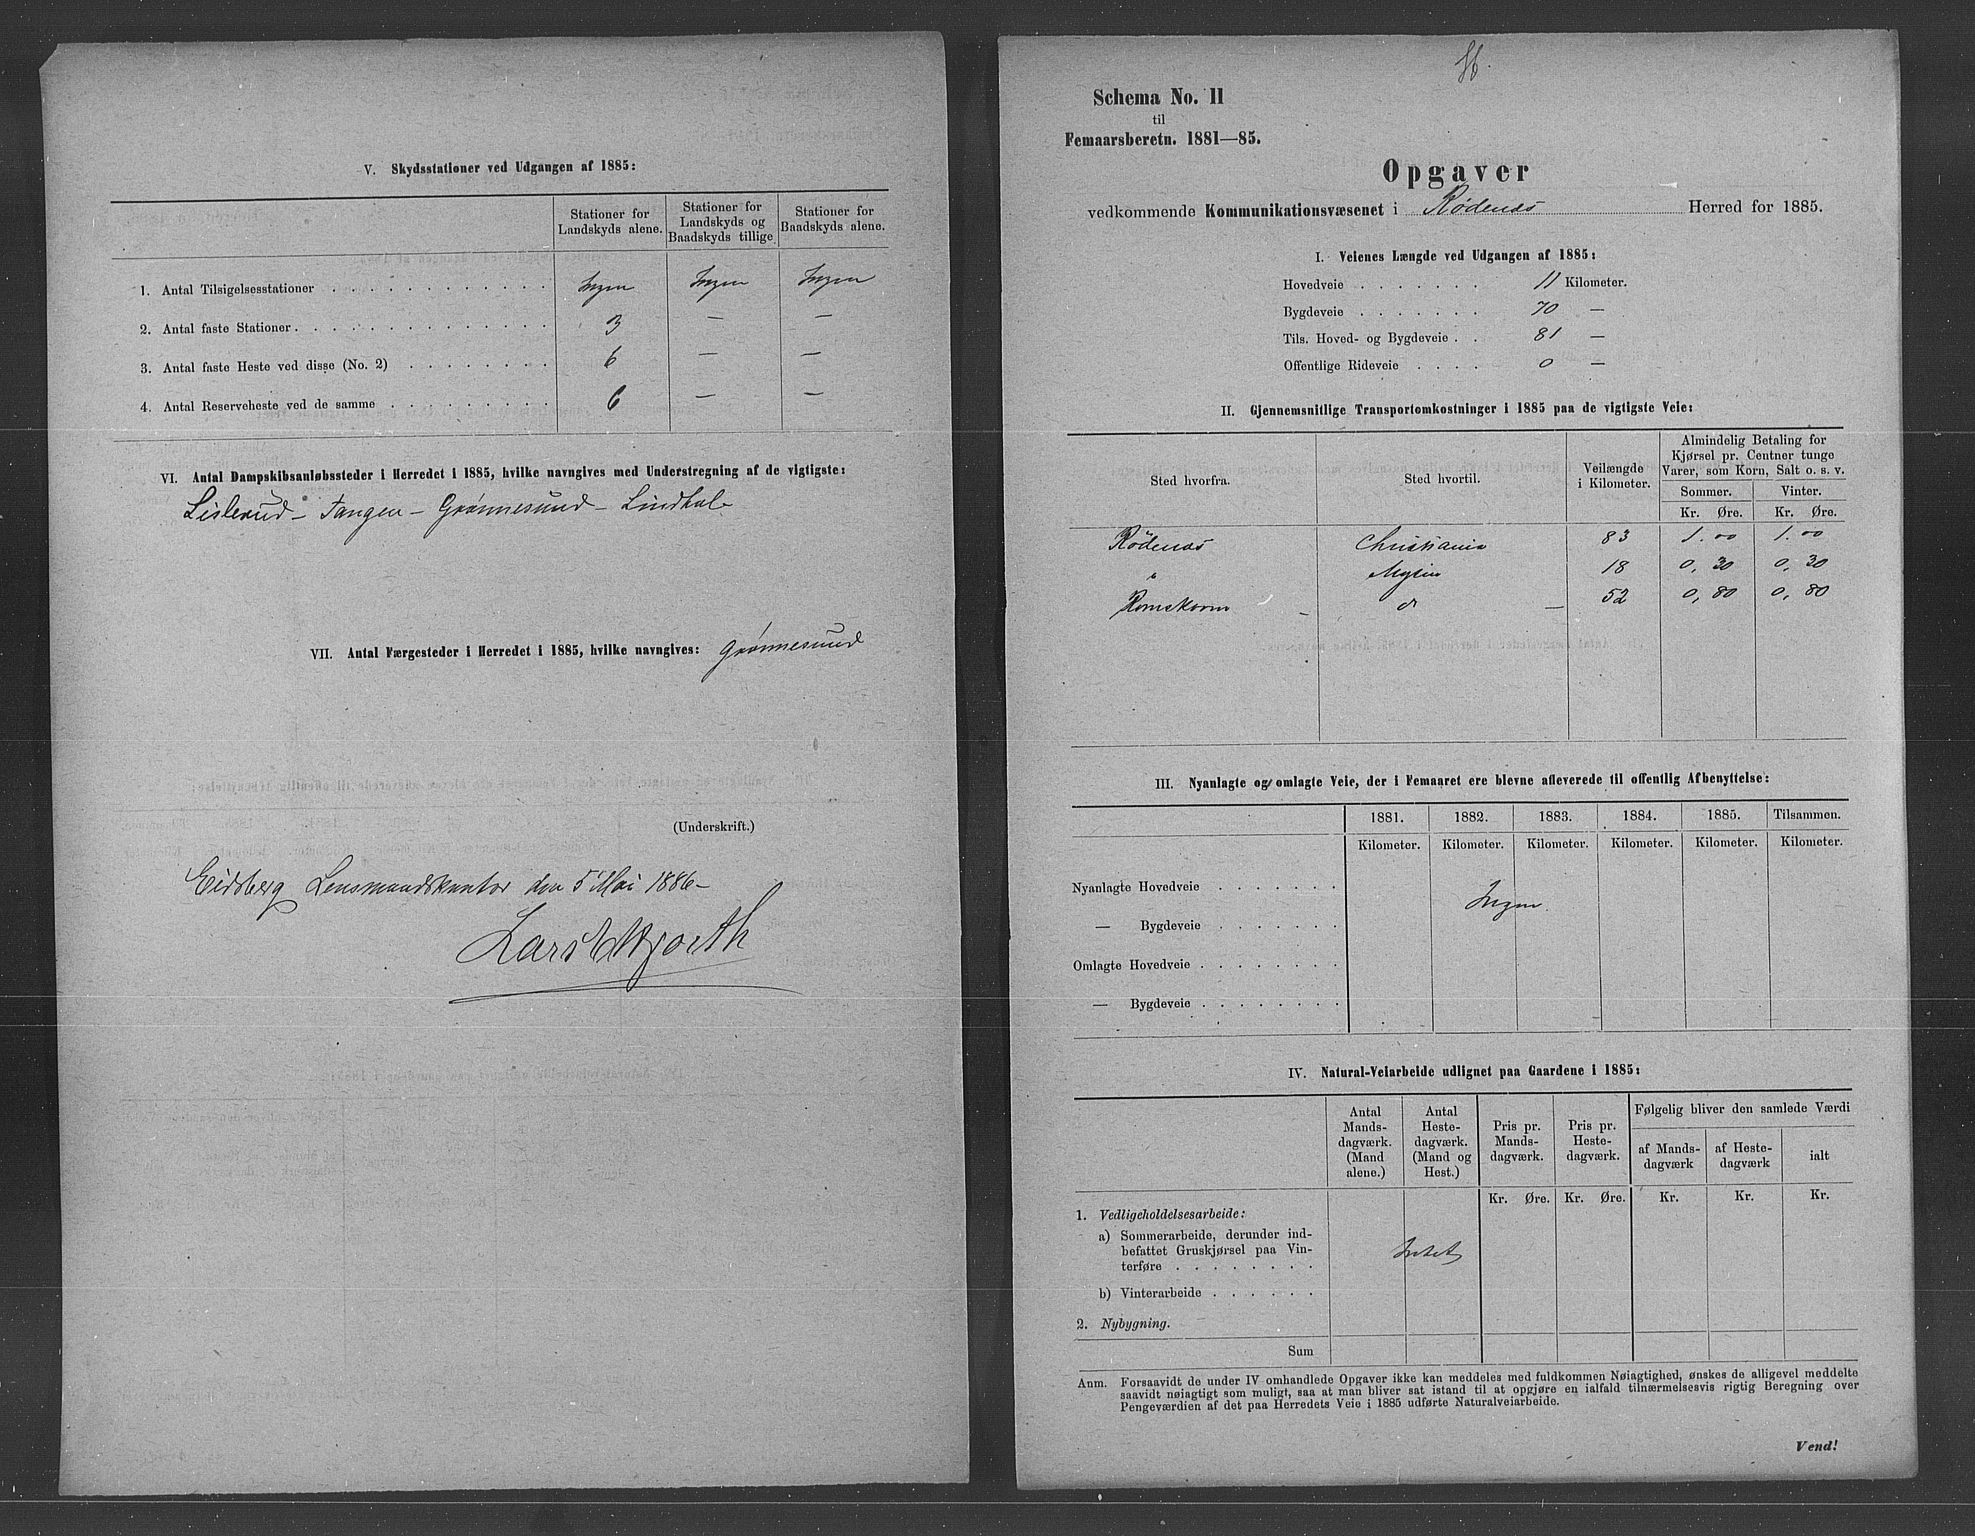 V. Skydsstationer ved Udgangen af 1885:
Stationer for Landskyds alene.
Stationer for Landskyds og Baadskyds tillige.
Stationer for Baadskyds alene.
1. Antal Tilsigelsesstationer Ingen Ingen Ingen
2. Antal faste Stationer 3 — —
3. Antal faste Heste ved disse (No. 2) 6 — —
4. Antal Reserveheste ved de samme 6 — —
VI. Antal Dampskibsanløbssteder i Herredet i 1885, hvilke navngives med Understregning af de vigtigste:
Lislerud – Tangen – Grønnesund –
VII. Antal Færgesteder i Herredet i 1885, hvilke navngives: Grønnesund
(Underskrift.)
Eidsberg Lensmandskontor den 5 Mai 1886 –
Schema No. II
til
Femaarsberetn. 1881—85.
Opgaver
vedkommende Kommunikationsvæsenet i Rødenæs Herred for 1885.
I. Veienes Længde ved Udgangen af 1885:
Hovedveie 11 Kilometer.
Bygdeveie 70 —
Tils. Hoved- og Bygdeveie 81 —
Offentlige Rideveie 0 —
II. Gjennemsnitlige Transportomkostninger i 1885 paa de vigtigste Veie:
Sted hvorfra.
Sted hvortil.
Veilængde i Kilometer.
Almindelig Betaling for
Kjørsel pr. Centner tunge
Varer, som Korn, Salt o. s. v.
Sommer. Vinter.
Kr. Øre. Kr. Øre.
Rødenæs Christiania 83 1.00 1.00
" Mysen 18 0,30 0,30
— — 52 0,80 0,80
III. Nyanlagte og omlagte Veie, der i Femaaret ere blevne afleverede til offentlig Afbenyttelse:
1881. 1882. 1883. 1884. 1885. Tilsammen.
Kilometer. Kilometer. Kilometer. Kilometer. Kilometer. Kilometer.
Nyanlagte Hovedveie
Ingen.
— Bygdeveie
Omlagte Hovedveie
— Bygdeveie
IV. Natural-Veiarbeide udlignet paa Gaardene i 1885:
Antal Mands-dagværk. (Mand alene.)
Antal Heste-dagværk. (Mand og Hest.)
Pris pr. Mands-dagværk.
Pris pr. Heste-dagværk.
Følgelig bliver den samlede Værdi
af Mands-dagværk
af Heste-dagværk
ialt
Kr. Øre. Kr. Øre. Kr. Kr. Kr.
1. Vedligeholdelsesarbeide:
a) Sommerarbeide, derunder ind-
befattet Gruskjørsel paa Vin-
terføre
Intet
b) Vinterarbeide
2. Nybygning.
Sum
Anm. Forsaavidt de under IV omhandlede Opgaver ikke kan meddeles med fuldkommen Nøiagtighed, ønskes de alligevel meddelte
saavidt nøiagtigt som muligt, saa at man bliver sat istand til at opgjøre en ialfald tilnærmelsesvis rigtig Beregning over
Pengeværdien af det paa Herredets Veie i 1885 udførte Naturalveiarbeide.
Vend!